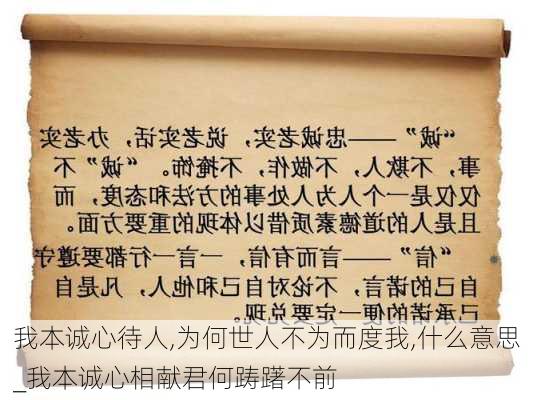 “诚”——忠诚老实，说老实话，办老实
事，不欺人，不做作，不掩饰。“诚”不
仅仅是一个人为人处事的方法和态度，而
且是人的道德素质借以体现的重要方面。
“信”——言而有信，一言一行都要遵守
自己的诺言，不论对自己和他人，凡是自
己承诺的便一定要兑现。
我本诚心待人,为何世人不为而度我,什么意思
_我本诚心相献君何踌躇不前